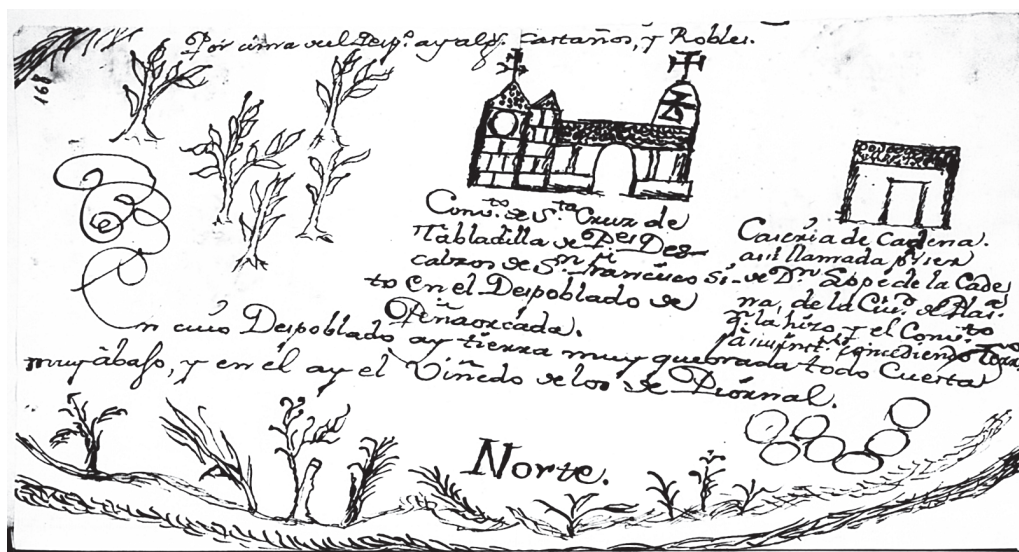 Por cima del Desp.º ay alg.s Castaños, y Robles.
168
Conv.to de S.ta Cruz de
Tabladilla de P.es Des-
calzos de S.n Francisco Si-
to en el Despoblado de
Peñaorcada.
Caseria de Cadena.
assi llamada p.r ser
de D.n Lope de la Cade
na, de la Ciu.d de Plas.a
q.e la hizo, y el Conv.to
En cuio Despoblado ay tierra muy quebrada todo Cuesta
muy àbaso, y en él ay el Viñedo de los de Piornal.
Norte.